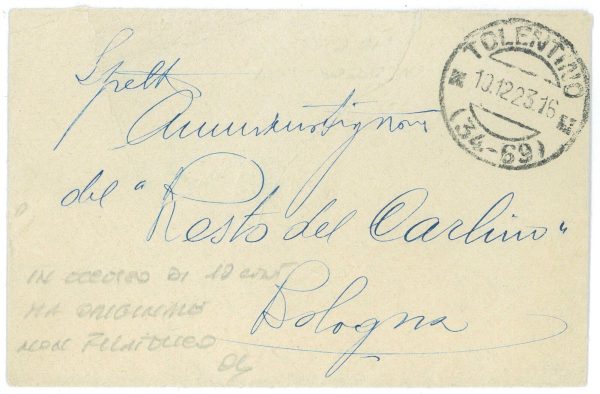 TOLENTINO
10.12.23.16
(34-69)
Spett
Amministrazione
del "Resto del Carlino"
Bologna
IN ECCESSO DI 10 cent
MA ORIGINALE
NON FILATELICO